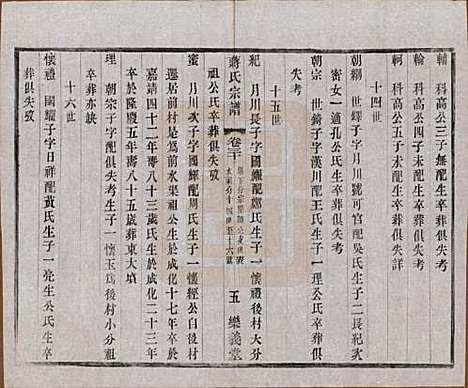 輔　科高公三子未配生卒葬俱失考
輪　科高公四子未配生卒葬俱失考
軻　科高公五子未配生卒葬俱失詳
十四世
朝縉　世鐸子字月川號可官配吳氏生子二長紀次
蜜女一適孔公氏生卒葬俱失考
朝宗　世錡子字漢川配王氏生子一理公氏卒葬俱
失考
十五世
紀　月川長子字國耀配鄭氏生子一懷禮後村大分
祖公氏卒葬俱失考
蔣氏宗譜
卷三十
五　樂義堂
蜜　月川次子字國輝配周氏生子一懷經公自後村
遷居前村是為前水巢祖公生於成化十七年卒於
嘉靖四十二年壽八十三歲氏生於成化二十三年
卒於隆慶五年壽八十五歲葬東大墳
理　朝宗子字配俱失考生子一懷玉為後村小分祖
卒葬亦缺
十六世
懷禮　國耀子字日祥配黃氏生子一亮生公氏生卒
葬俱失攷